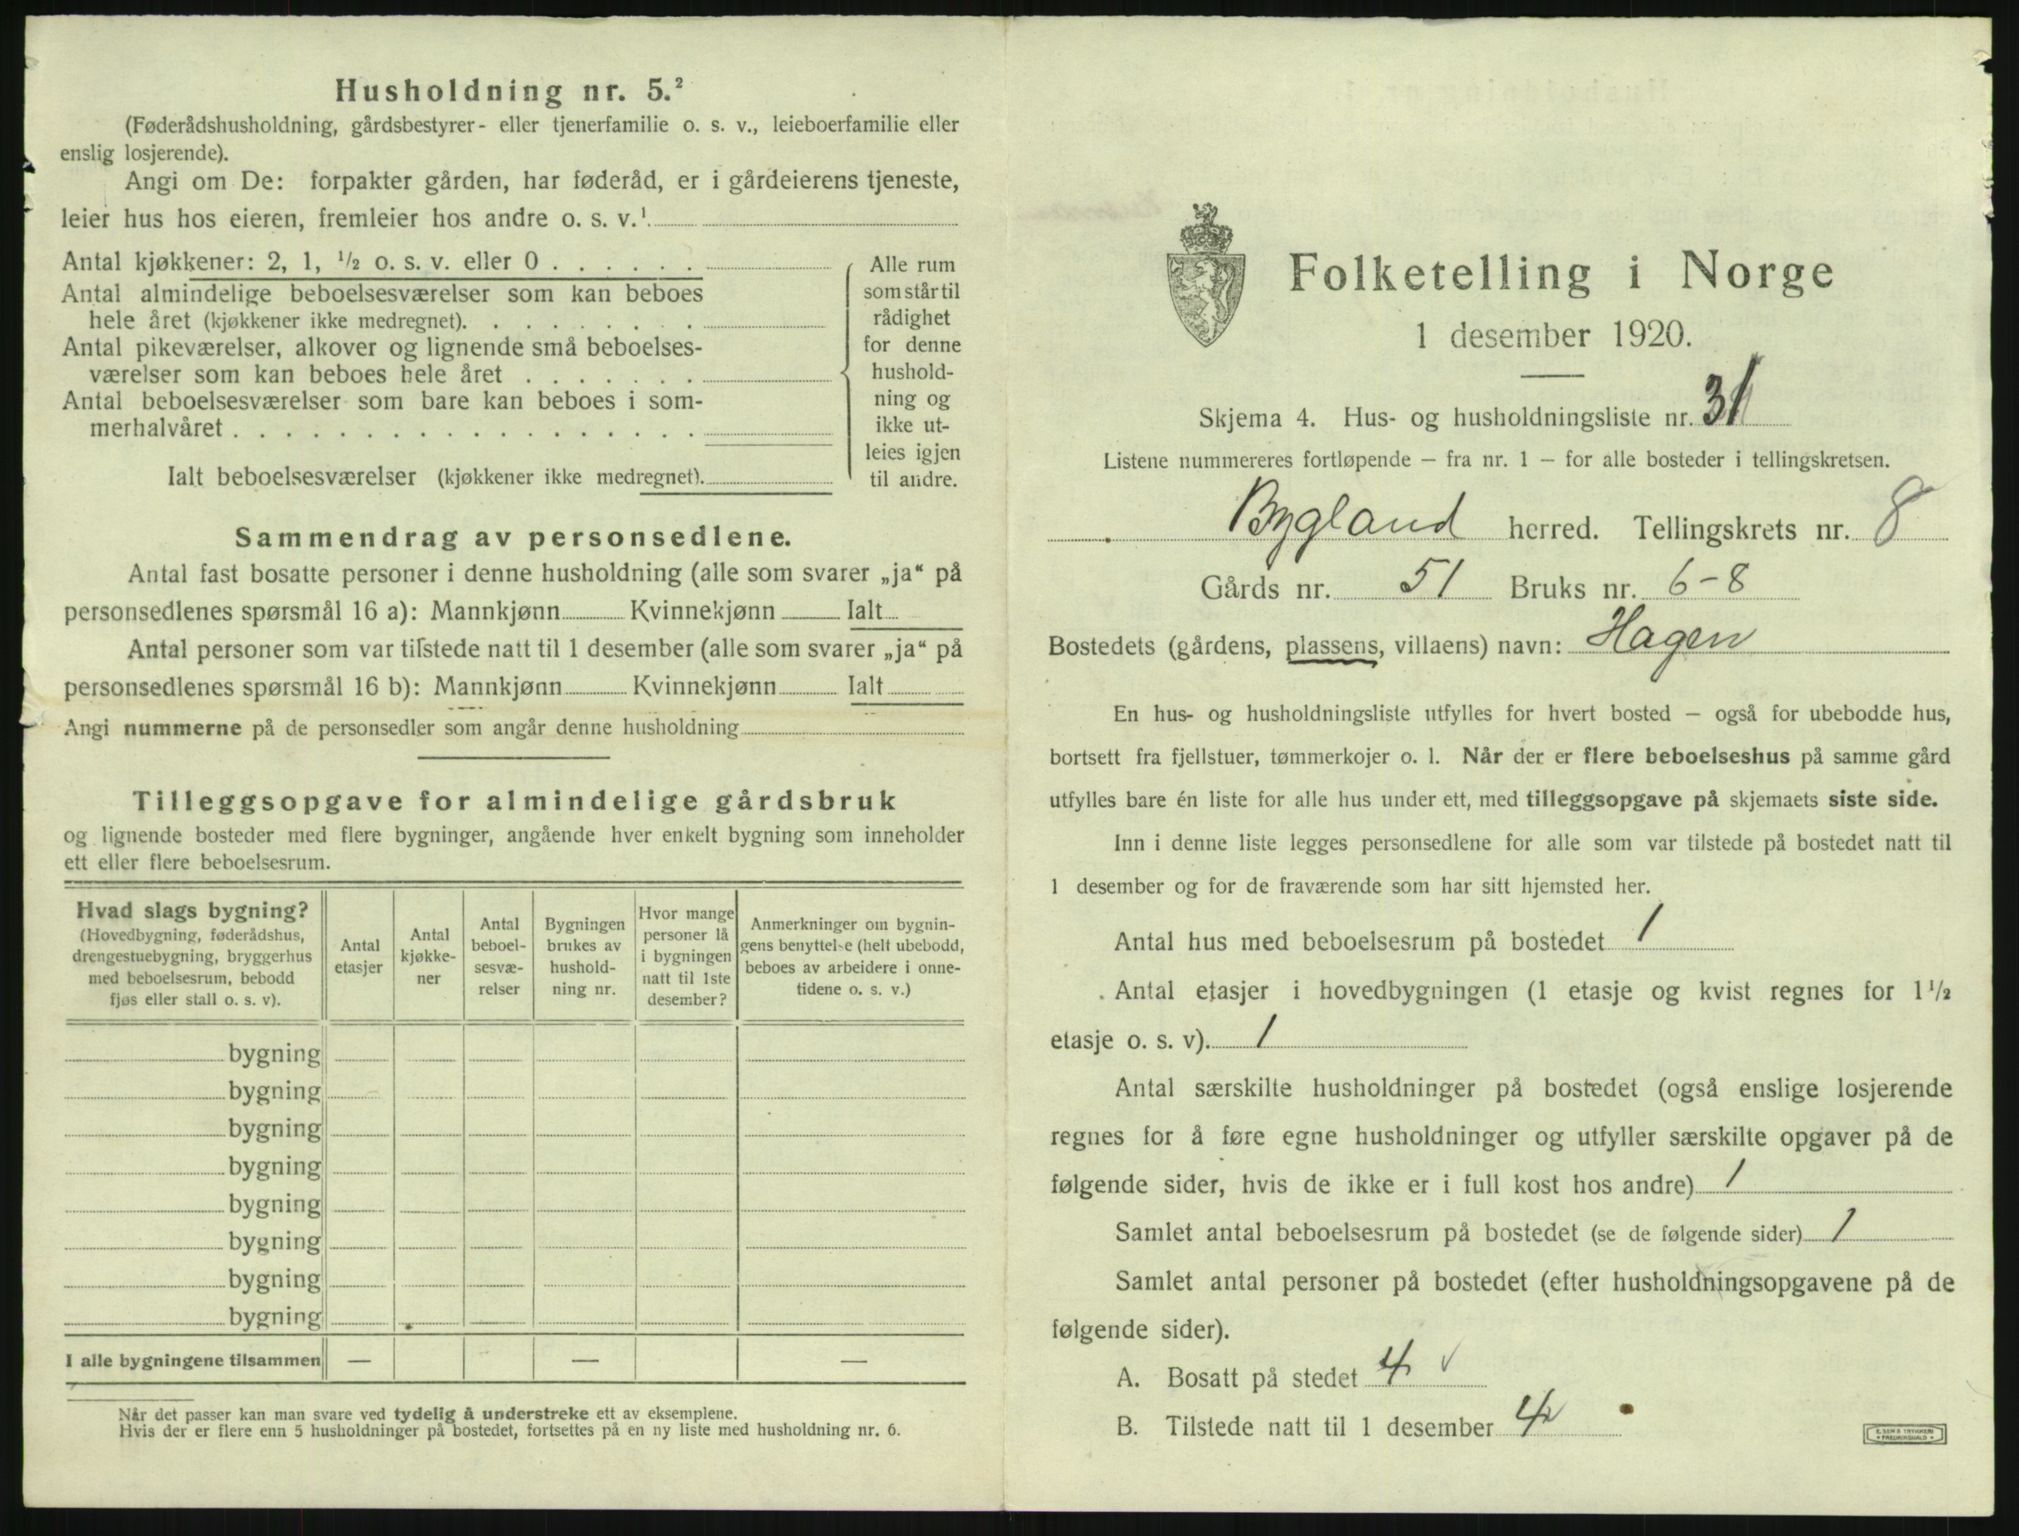 Husholdning nr. 5.²
(Føderådshusholdning, gårdsbestyrer- eller tjenerfamilie o. s. v., leieboerfamilie eller
enslig losjerende).
Angi om De: forpakter gården, har føderåd, er i gårdeierens tjeneste,
leier hus hos eieren, fremleier hos andre o. s. v.¹
Antal kjøkkener: 2, 1, ½ o. s. v. eller 0 . . . . . .
Antal almindelige beboelsesværelser som kan beboes
hele året (kjøkkener ikke medregnet). . . . . . . . .
Antal pikeværelser, alkover og lignende små beboelses-
værelser som kan beboes hele året . . . . . . .
Antal beboelsesværelser som bare kan beboes i som-
merhalvåret . . . . . . . . . . . . . . . . . .
Ialt beboelsesværelser (kjøkkener ikke medregnet).
Alle rum
som står til
rådighet
for denne
hushold-
ning og
ikke ut-
leies igjen
til andre.
Sammendrag av personsedlene.
Antal fast bosatte personer i denne husholdning (alle som svarer „ja“ på
personsedlenes spørsmål 16 a): Mannkjønn Kvinnekjønn Ialt
Antal personer som var tilstede natt til 1 desember (alle som svarer „ja“ på
personsedlenes spørsmål 16 b): Mannkjønn Kvinnekjønn Ialt
Angi nummerne på de personsedler som angår denne husholdning
Tilleggsopgave for almindelige gårdsbruk
og lignende bosteder med flere bygninger, angående hver enkelt bygning som inneholder
ett eller flere beboelsesrum.
Hvad slags bygning?
(Hovedbygning, føderådshus,
drengestuebygning, bryggerhus
med beboelsesrum, bebodd
fjøs eller stall o. s. v).
Antal
etasjer
Antal
kjøkke-
ner
Antal
beboel-
sesvæ-
relser
Bygningen
brukes av
hushold-
ning nr.
Hvor mange
personer lå
i bygningen
natt til 1ste
desember?
Anmerkninger om bygnin-
gens benyttelse (helt ubebodd,
beboes av arbeidere i onne-
tidene o. s. v.)
bygning
bygning
bygning
bygning
bygning
bygning
bygning
bygning
I alle bygningene tilsammen — — —
Når det passer kan man svare ved tydelig å understreke ett av eksemplene.
Hvis der er flere enn 5 husholdninger på bostedet, fortsettes på en ny liste med husholdning nr. 6.
Folketelling i Norge
1 desember 1920.
Skjema 4. Hus- og husholdningsliste nr. 31
Listene nummereres fortløpende — fra nr. 1 — for alle bosteder i tellingskretsen.
Bygland herred. Tellingskrets nr. 8
Gårds nr. 51 Bruks nr. 6-8
Bostedets (gårdens, plassens, villaens) navn: Hagen
En hus- og husholdningsliste utfylles for hvert bosted — også for ubebodde hus,
bortsett fra fjellstuer, tømmerkojer o. l. Når der er flere beboelseshus på samme gård
utfylles bare én liste for alle hus under ett, med tilleggsopgave på skjemaets siste side.
Inn i denne liste legges personsedlene for alle som var tilstede på bostedet natt til
1 desember og for de fraværende som har sitt hjemsted her.
Antal hus med beboelsesrum på bostedet 1
Antal etasjer i hovedbygningen (1 etasje og kvist regnes for 1½
etasje o. s. v). 1
Antal særskilte husholdninger på bostedet (også enslige losjerende
regnes for å føre egne husholdninger og utfyller særskilte opgaver på de
følgende sider, hvis de ikke er i full kost hos andre) 1
Samlet antal beboelsesrum på bostedet (se de følgende sider) 1
Samlet antal personer på bostedet (efter husholdningsopgavene på de
følgende sider).
A. Bosatt på stedet 4 ✓
B. Tilstede natt til 1 desember 4